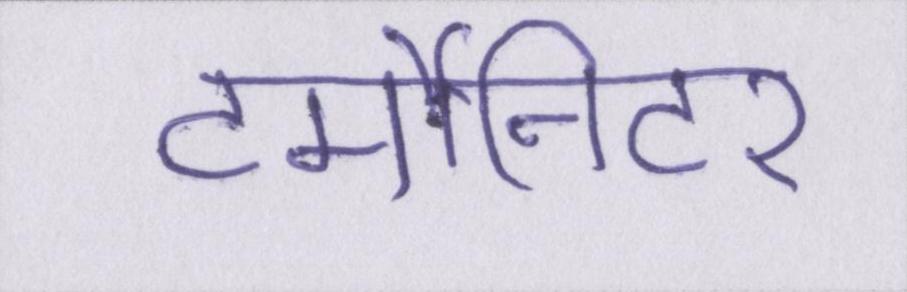 टर्मोनिटर